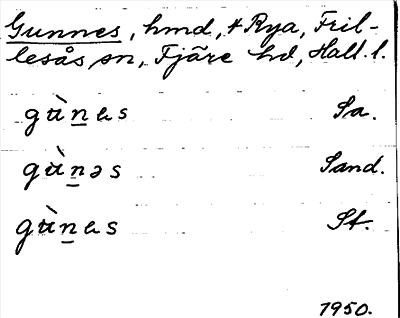 Gunnes, hmd, t Rya, Fril-
lesås sn, Fjäre hd, Hall. l.
gùn̲as Sa.
gùn̲əs Sand.
gùn̲as St.
1950.